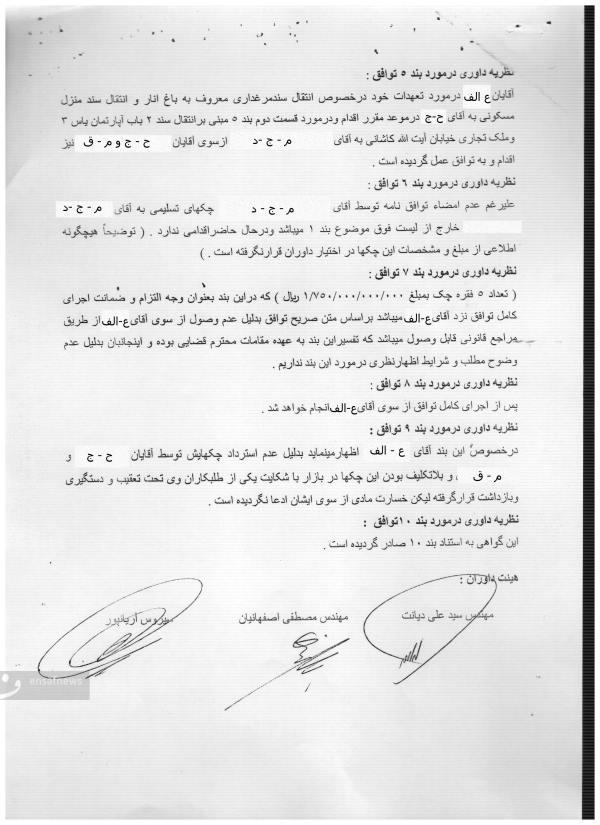 نظریه داوری درمورد بند ۵ توافق :
آقایان ع الف درمورد تعهدات خود درخصوص انتقال سندمرغداری معروف به باغ انار و انتقال سند منزل
مسکونی به آقای ح-ج درموعد مقرر اقدام ودرمورد قسمت دوم بند ۵ مبنی برانتقال سند ۲ باب آپارتمان یاس ۳
وملک تجاری خیابان آیت الله کاشانی به آقای م - ج - د ازسوی آقایان ح - ج و م - ق نیز
اقدام و به توافق عمل گردیده است .
نظریه داوری درمورد بند ۶ توافق :
علیرغم عدم امضاء توافق نامه توسط آقای م - ج - د چکهای تسلیمی به آقای م - ج - د
خارج از لیست فوق موضوع بند ۱ میباشد ودرحال حاضراقدامی ندارد . ( توضیحاً هیچگونه
اطلاعی از مبلغ و مشخصات این چکها در اختیار داوران قرارنگرفته است . )
نظریه داوری درمورد بند ۷ توافق :
( تعداد ۵ فقره چک بمبلغ ۱/۷۵۰/۰۰۰/۰۰۰/۰۰۰ ریال ) که دراین بند بعنوان وجه التزام و ضمانت اجرای
کامل توافق نزد آقای ع-الف میباشد براساس متن صریح توافق بدلیل عدم وصول از سوی آقای ع-الف از طریق
مراجع قانونی قابل وصول میباشد که تفسیراین بند به عهده مقامات محترم قضایی بوده و اینجانبان بدلیل عدم
وضوح مطلب و شرایط اظهارنظری درمورد این بند نداریم .
نظریه داوری درمورد بند ۸ توافق :
پس از اجرای کامل توافق از سوی آقای ع-الف انجام خواهد شد .
نظریه داوری درمورد بند ۹ توافق :
درخصوص این بند آقای ع - الف اظهارمینماید بدلیل عدم استرداد چکهایش توسط آقایان ح - ج و
م - ق ، و بلاتکلیف بودن این چکها در بازار با شکایت یکی از طلبکاران وی تحت تعقیب و دستگیری
وبازداشت قرارگرفته لیکن خسارت مادی از سوی ایشان ادعا نگردیده است .
نظریه داوری درمورد بند ۱۰ توافق :
این گواهی به استناد بند ۱۰ صادر گردیده است .
هیئت داوران :
مهندس سید علی دیانت
مهندس مصطفی اصفهانیان
سیروس آریانپور
ensafnews